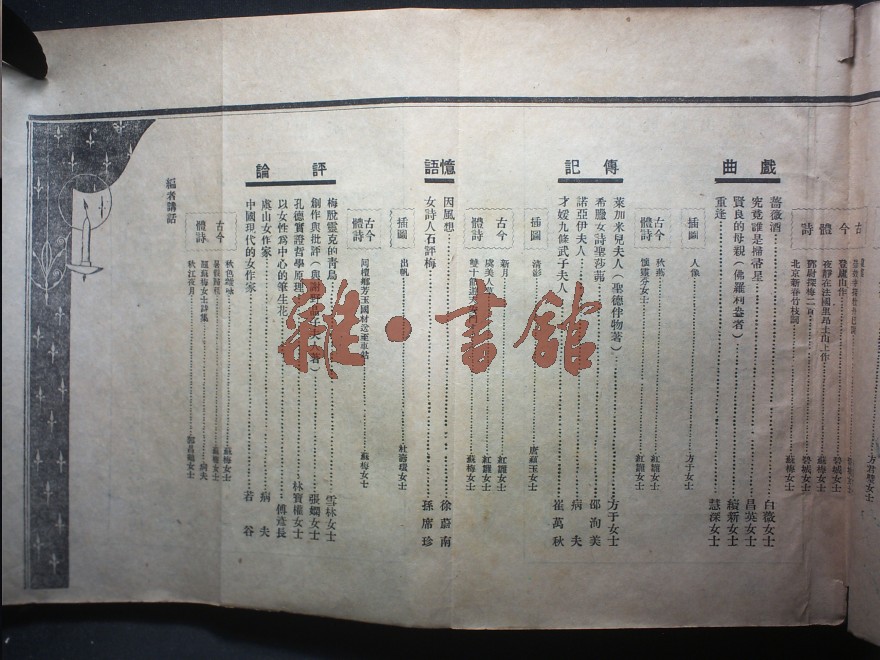 方君璧女士
古今體詩
登廬山作
碧城女士
夜靜在法國里昂土山上作
蘇梅女士
鄧尉探梅二首
碧城女士
北京新春竹枝詞
蘇梅女士
戲曲
薔薇酒
白薇女士
究竟誰是掃帚星
昌英女士
賢良的母親
續新女士
重逢
慧深女士
插圖
人像
方于女士
古今體詩
秋燕
紅薇女士
懷靈芬女士
紅薇女士
傳記
萊加米兒夫人(聖德伴物著)
方于女士
希臘女詩聖莎茀
邵洵美
諾亞伊夫人
病夫
才媛九條武子夫人
崔萬秋
插圖
清影
唐蘊玉女士
古今體詩
新月
紅薇女士
虞美人
雙十節
蘇梅女士
憶語
因風想
徐蔚南
女詩人石評梅
孫席珍
插圖
出帆
古今體詩
蘇梅女士
評論
梅脫靈克的青鳥
雪林女士
創作與批評
張嫻女士
孔德實證哲學原理
林寶權女士
以女性爲中心的筆生花
傅彥長
處山女作家
病夫
中國現代的女作家
若谷
古今體詩
秋色
蘇梅女士
題蘇梅女士詩集
病夫
秋江夜月
編者講話
雜·書館